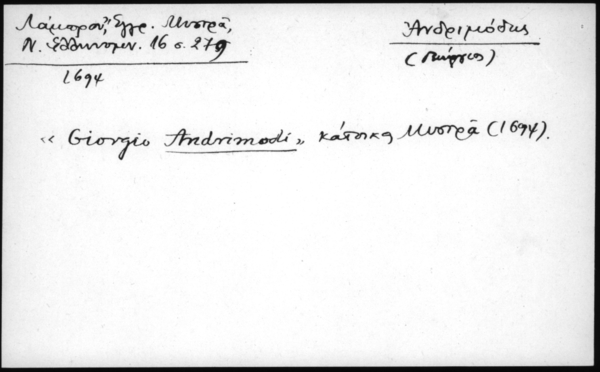 Λάμπρου, Ἔγγρ. Μυστρᾶ,
Ν. Ἑλληνομν. 16 σ. 279
1694
Ἀνδριμόδης
(Γεώργιος)
« Giorgio Andrimodi » κάτοικος Μυστρᾶ (1694).